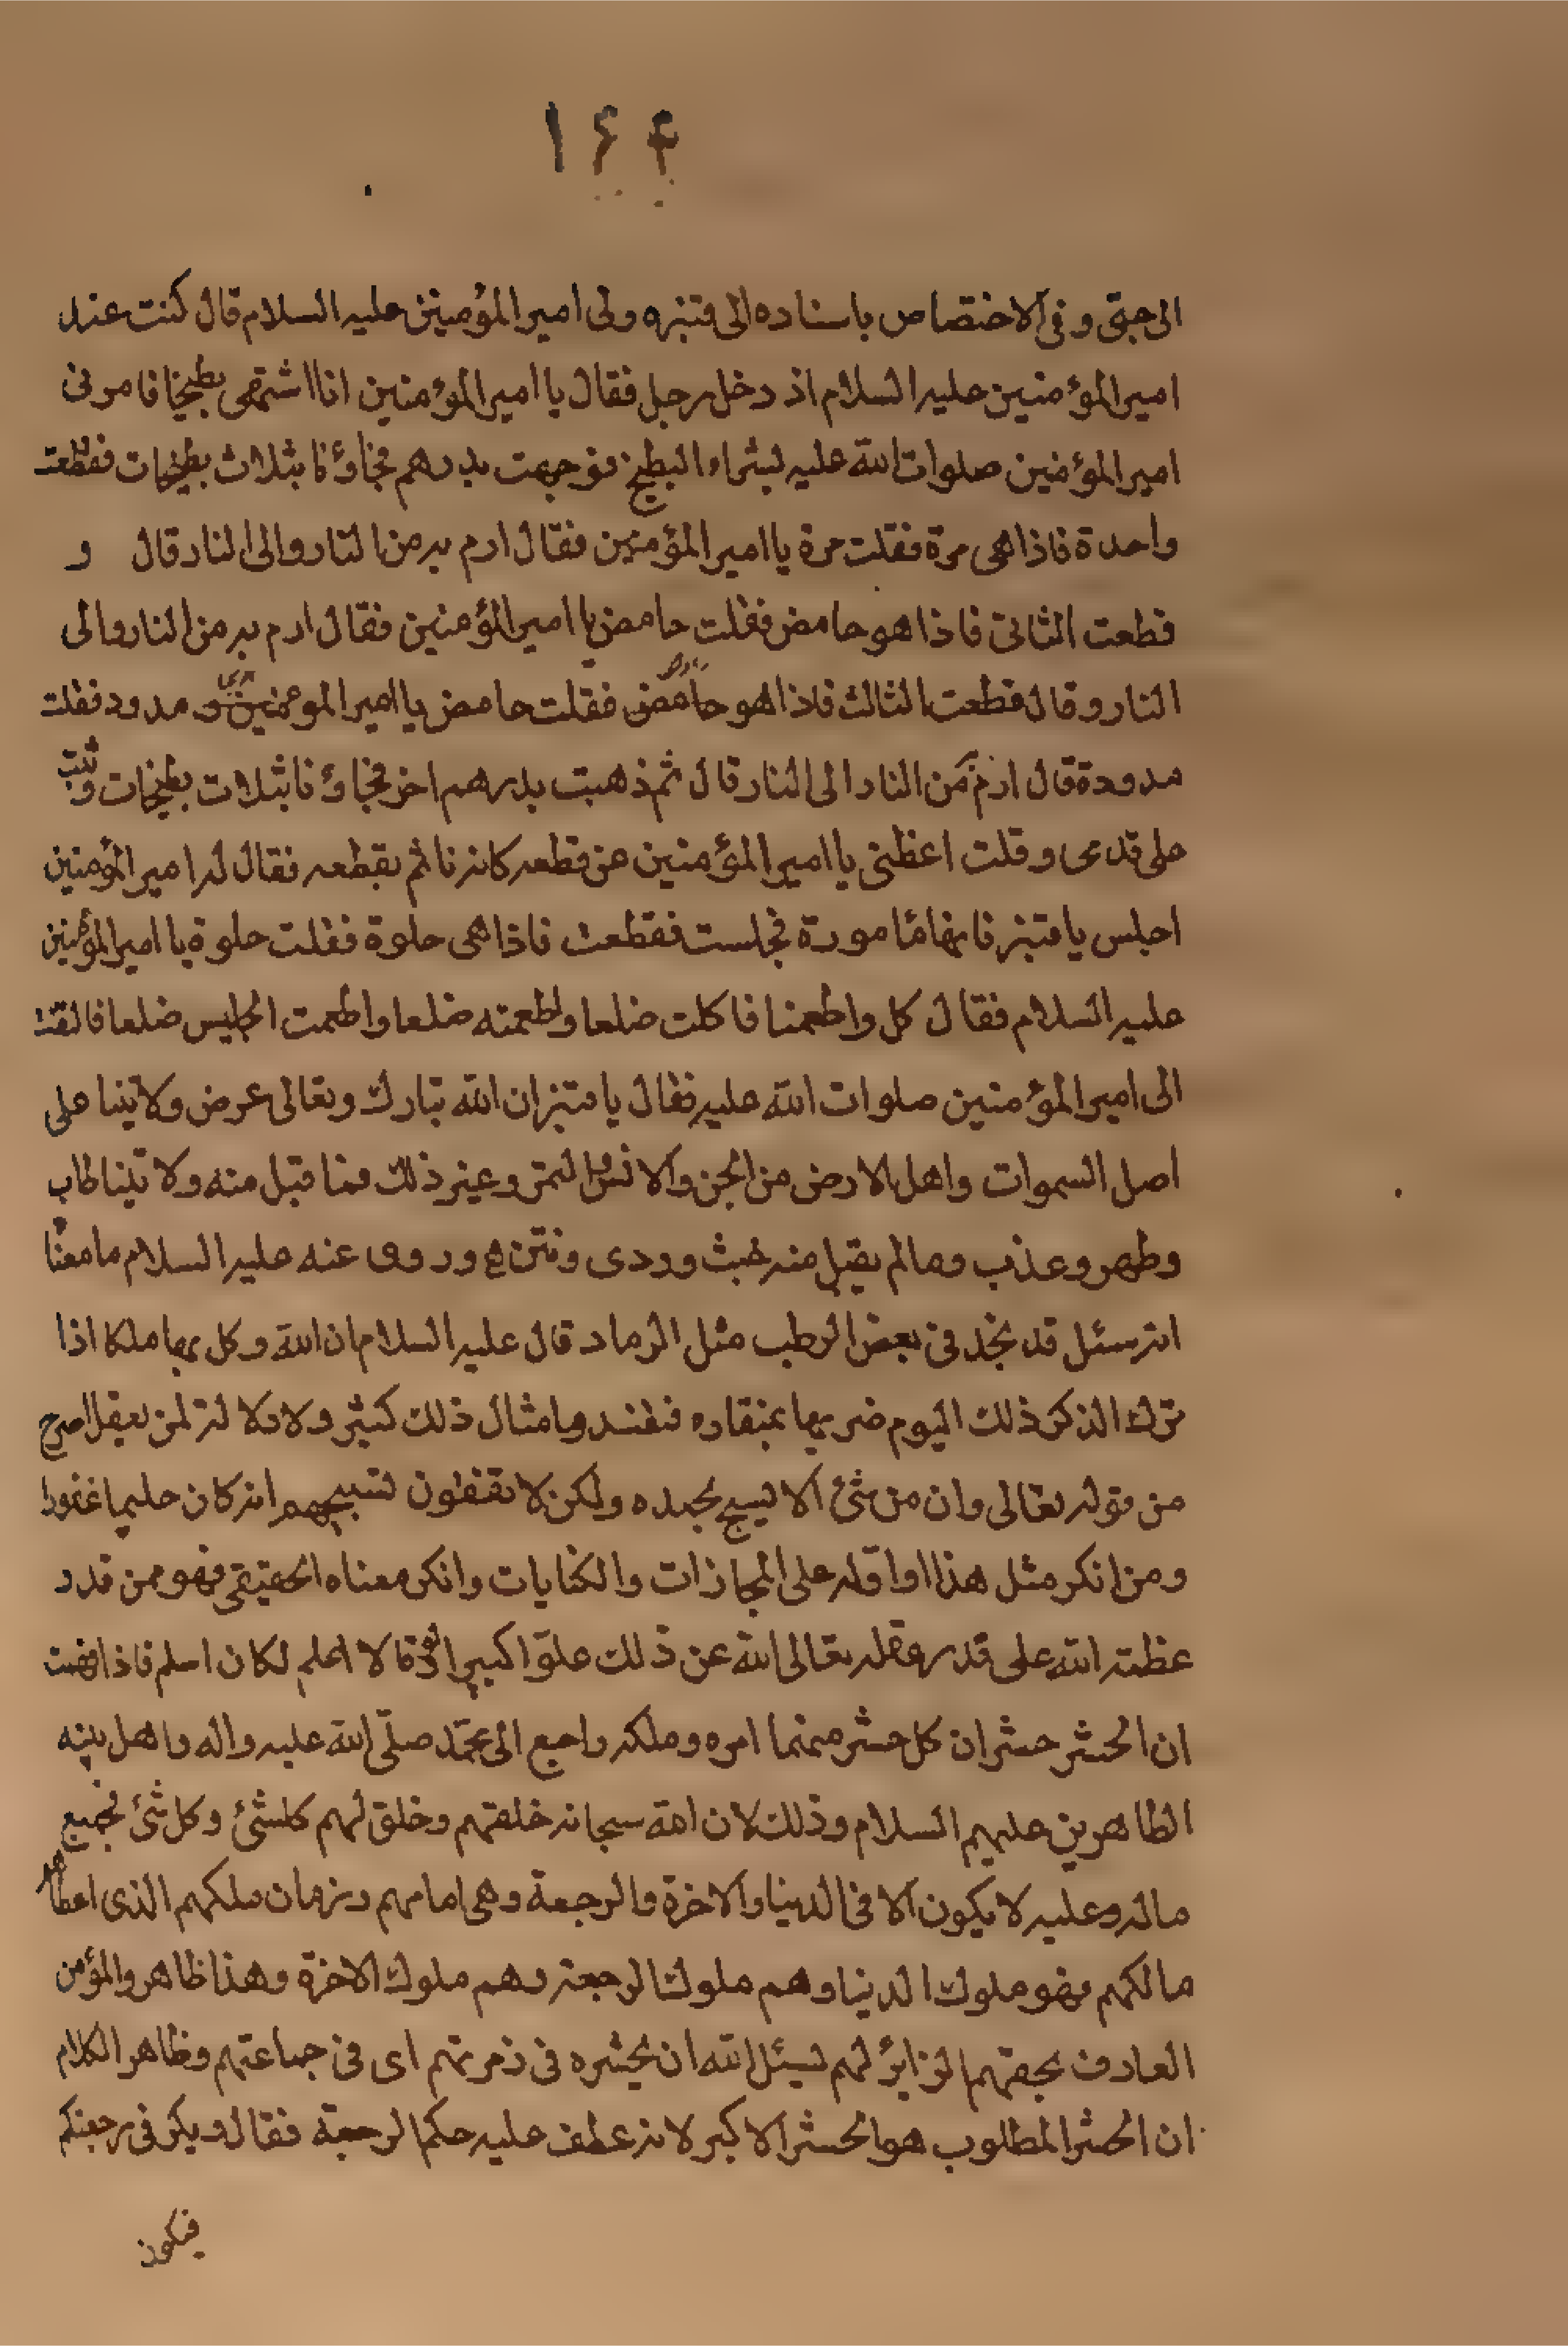 ۱۶۴
الى جبتى وفى الاختصاص باسناده الى قنبره ولى امير المؤمنين عليه السلام قال كنت عند
امير المؤمنين عليه السلام اذ دخل رجل فقال يا امير المؤمنين انا اشتهى بطيخا فامرنى
امير المؤمنين صلوات الله عليه بشراء البطيخ فوجهت بدرهم فجاؤنا بثلاث بطيخات فقطعت
واحدة فاذا هى مرة فقلت مرة يا امير المؤمنين فقال ارم به من النار والى النار قال و
قطعت الثانى فاذا هو حامض فقلت حامض يا امير المؤمنين فقال ارم به من النار والى
النار وقال فقطعت الثالث فاذا هو حامض فقلت حامض يا امير المومنين مدود فقلت
مدودة قال ارم من النار الى النار قال ثم ذهبت بدرهم اخر فجاؤنا بثلاث بطيخات وثبت
على قدمى وقلت اعظنى يا امير المؤمنين عن قطعه كانه تاثم بقطعه فقال له امير المؤمنين
اجلس يا قنبر فانها مامورة فجلست فقطعت فاذا هى حلوة فقلت حلوة يا امير المؤمنين
عليه السلام فقال كل واطعمنا فاكلت ضلعا واطعمته ضلعا واطعمت الجليس ضلعا فالتفت
الى امير المؤمنين صلوات الله عليه فقال يا قنبر ان الله تبارك وتعالى عرض ولايتنا على
اهل السموات واهل الارض من الجن والانس والثمر وغير ذلك فما قبل منه ولايتنا طاب
وطهر وعذب ومالم يقبل منه خبث وردى ونتن ه وروى عنه عليه السلام ما معنا
انه سئل قد نجد فى بعض الرطب مثل الرماد قال عليه السلام ان الله وكل بها ملكا اذا
ترك الذكر ذلك اليوم ضربها بمنقاره فتفسد وامثال ذلك كثير ولا دلالة لمن يعقل اصرح
من قوله تعالى وان من شئ الا يسبح بحمده ولكن لا تفقهون تسبيحهم انه كان حليما غفورا
ومن انكر مثل هذا او اوله على المجازات والكنايات وانكر معناه الحقيقى فهو ممن قدر
عظمته الله على قدر عقله تعالى الله عن ذلك علوا كبيرا ولو قال لا اعلم لكان اسلم فاذا فهمت
ان الحشر حشران كل حشر منهما امره وملكه راجع الى محمد صلى الله عليه واله واهل بيته
الطاهرين عليهم السلام وذلك لان الله سبحانه خلقهم وخلق لهم كلشئ وكل شئ فجميع
ماله وعليه لا يكون الا فى الدنيا والاخرة والرجعة وهى امامهم وزمان ملكهم الذى اعطاهم
مالكهم فهو ملوك الدنيا وهم ملوك الرجعة وهم ملوك الاخرة وهذا ظاهر والمؤمن
العارف بحقهم الزائر لهم يسئل الله ان يحشره فى زمرتهم اى فى جماعتهم وظاهر الكلام
ان الحشر المطلوب هو الحشر الاكبر لانه عطف عليه حكم الرجعة فقال ويكر فى رجعتكم
فيكون